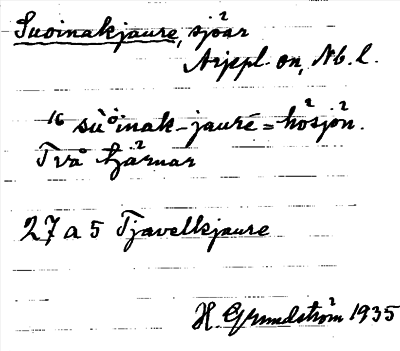 Suoinakjaure, sjöar
Arjepl. sn, Nb. l.
16 su̇ȯinak-jaurē = hösjön.
Två tjärnar
27 a 5 Tjavelkjaure
H Grundström 1935